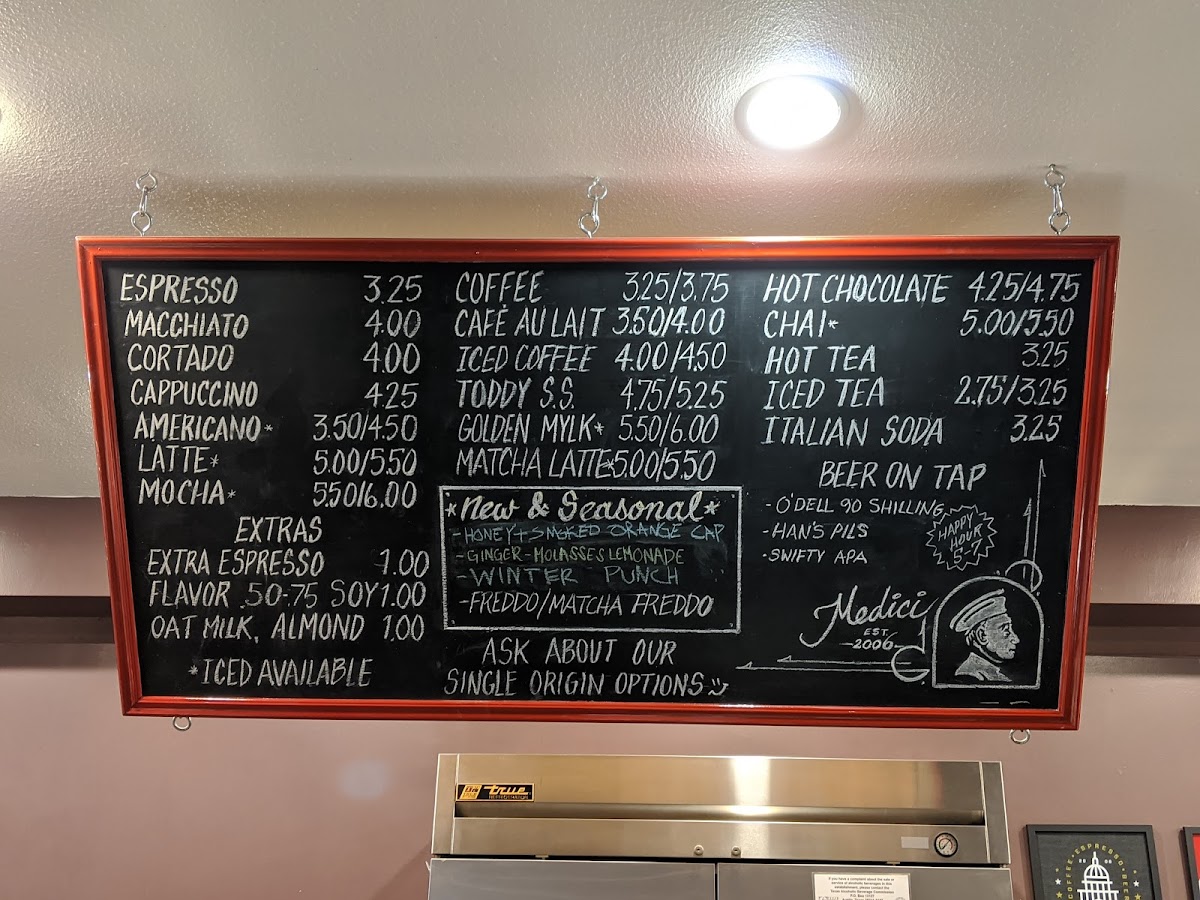 ESPRESSO 3.25
MACCHIATO 4.00
CORTADO 4.00
CAPPUCCINO 4.25
AMERICANO* 3.50/4.50
LATTE* 5.00/5.50
MOCHA* 5.50/6.00
EXTRAS
EXTRA ESPRESSO 1.00
FLAVOR .50-.75 SOY 1.00
OAT MILK, ALMOND 1.00
*ICED AVAILABLE
COFFEE 3.25/3.75
CAFÉ AU LAIT 3.50/4.00
ICED COFFEE 4.00/4.50
TODDY S.S. 4.75/5.25
GOLDEN MYLK* 5.50/6.00
MATCHA LATTE* 5.00/5.50
*New & Seasonal*
-HONEY + SMOKED ORANGE CAP
-GINGER-MOLASSES LEMONADE
-WINTER PUNCH
-FREDDO/MATCHA FREDDO
ASK ABOUT OUR
SINGLE ORIGIN OPTIONS
HOT CHOCOLATE 4.25/4.75
CHAI* 5.00/5.50
HOT TEA 3.25
ICED TEA 2.75/3.25
ITALIAN SODA 3.25
BEER ON TAP
-O'DELL 90 SHILLING
-HAN'S PILS
-SWIFTY APA
HAPPY
HOUR
5-7
Medici
EST.
-2006-
true
If you have a complaint about the sale or
service of alcoholic beverages in this
establishment, please contact the
Texas Alcoholic Beverage Commission
COFFEE ESPRESSO BEER